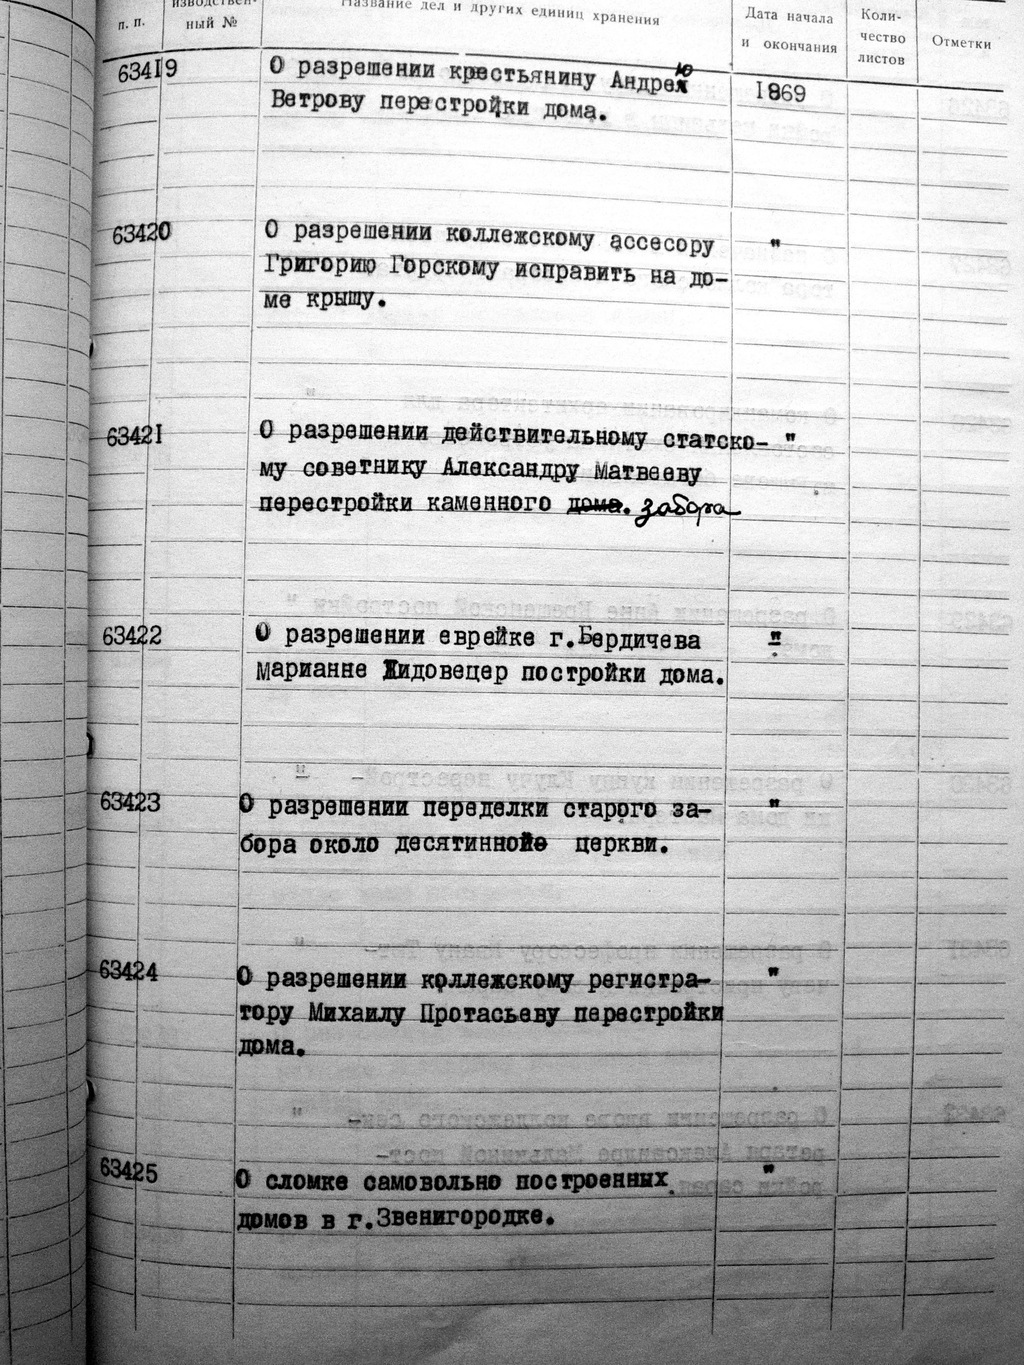 п. п.
изводствен-
ный №
Название дел и других единиц хранения
Дата начала
и окончания
Коли-
чество
листов
Отметки
63419 О разрешении крестьянину Андрею 1869
Ветрову перестройки дома.
63420 О разрешении коллежскому ассесору "
Григорию Горскому исправить на до-
ме крышу.
63421 О разрешении действительному статско- "
му советнику Александру Матвееву
перестройки каменного дома. забора
63422 О разрешении еврейке г.Бердичева "
Марианне Жидовецер постройки дома.
63423 О разрешении переделки старого за- "
бора около десятинной церкви.
63424 О разрешении коллежскому регистра- "
тору Михаилу Протасьеву перестройки
дома.
63425 О сломке самовольно построенных "
домов в г.Звенигородке.